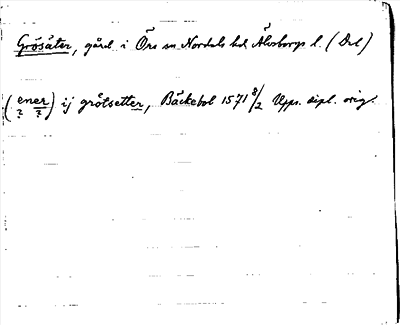 Grösäter, gård i Örs sn Nordals hd Älvsborgs l. (Dal)
(ener) ij grötsetter, Bäckebol 1571 8/2 Upps. dipl. orig.
? ?